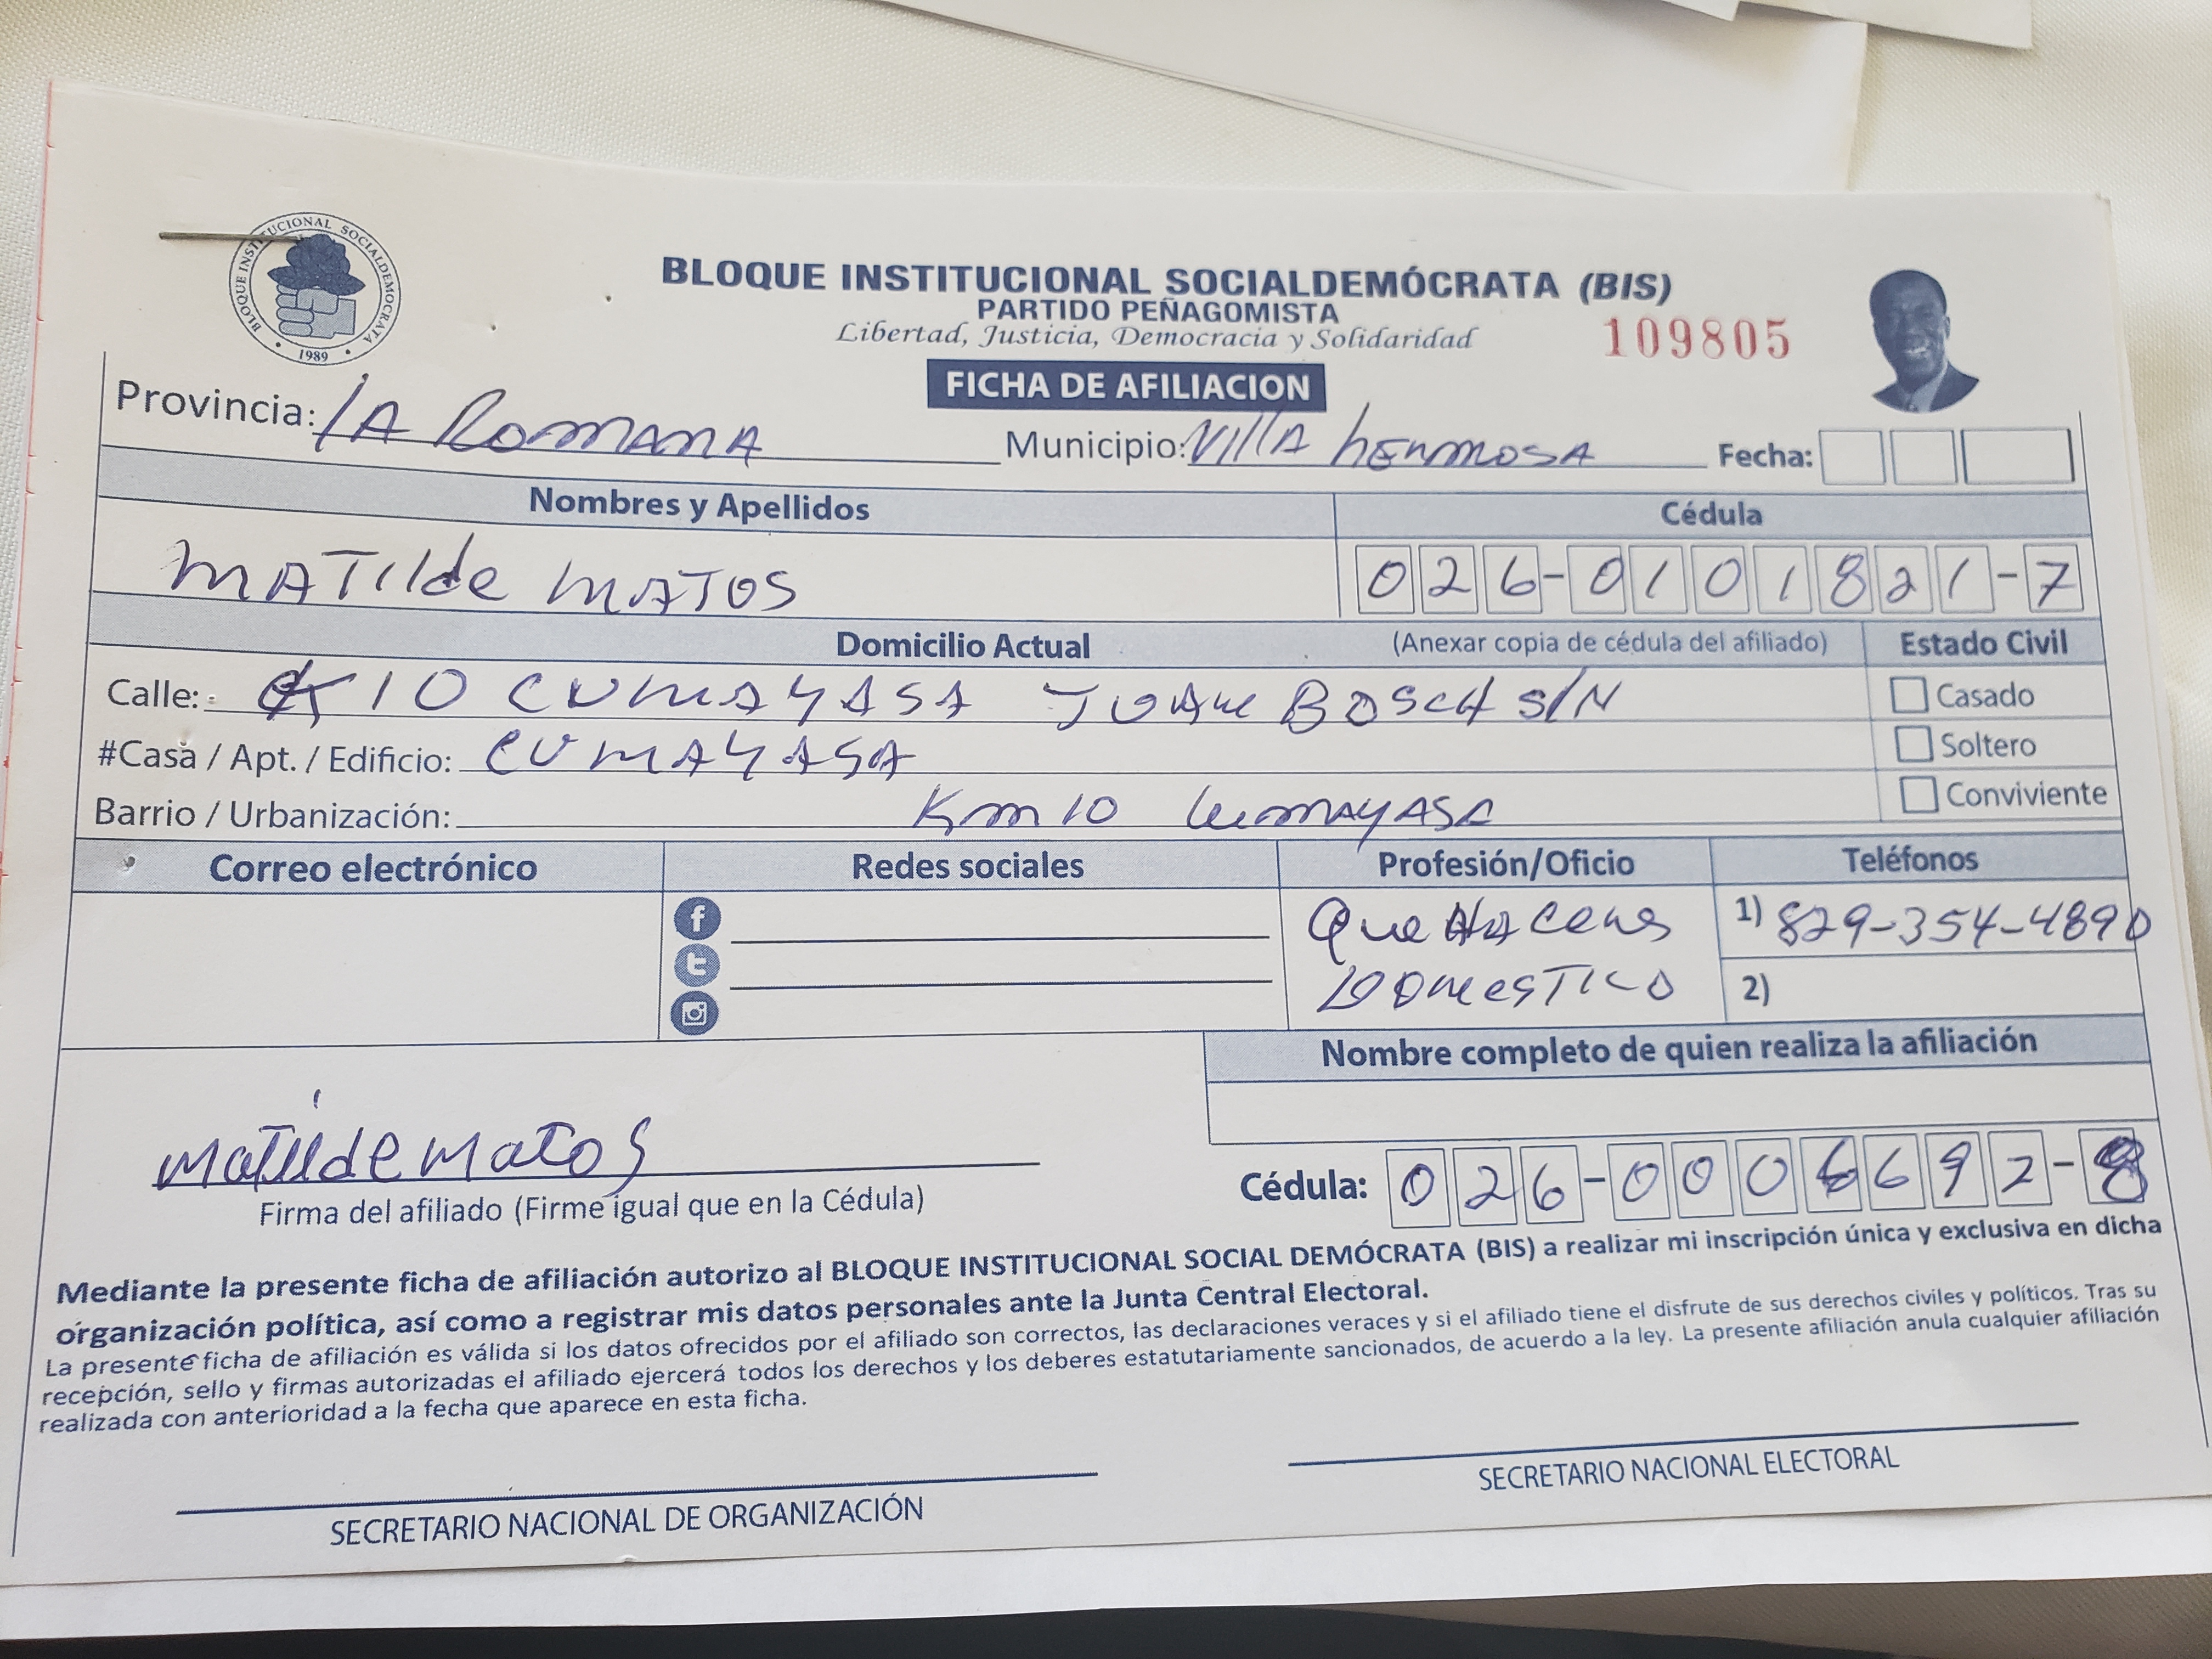 BLOQUE INSTITUCIONAL SOCIALDEMOCRATA
1989
BLOQUE INSTITUCIONAL SOCIALDEMÓCRATA (BIS)
PARTIDO PEÑAGOMISTA
Libertad, Justicia, Democracia y Solidaridad
109805
FICHA DE AFILIACION
Provincia: LA ROMANA Municipio: VIllA hERMOSA Fecha:
Nombres y Apellidos Cédula
MATIlde MATOS 026-0101821-7
Domicilio Actual (Anexar copia de cédula del afiliado) Estado Civil
Calle: 10 CUMAYASA BOSCH S/N Casado
#Casa / Apt. / Edificio: CUMAYASA Soltero
Barrio / Urbanización: Km 10 CumAYASA Conviviente
Correo electrónico Redes sociales Profesión/Oficio Teléfonos
QueHACeRes 1) 829-354-4890
DOMesTICO 2)
Nombre completo de quien realiza la afiliación
Matilde Matos
Firma del afiliado (Firme igual que en la Cédula)
Cédula: 026-0006692-8
Mediante la presente ficha de afiliación autorizo al BLOQUE INSTITUCIONAL SOCIAL DEMÓCRATA (BIS) a realizar mi inscripción única y exclusiva en dicha
organización política, así como a registrar mis datos personales ante la Junta Central Electoral.
La presente ficha de afiliación es válida si los datos ofrecidos por el afiliado son correctos, las declaraciones veraces y si el afiliado tiene el disfrute de sus derechos civiles y políticos. Tras su
recepción, sello y firmas autorizadas el afiliado ejercerá todos los derechos y los deberes estatutariamente sancionados, de acuerdo a la ley. La presente afiliación anula cualquier afiliación
realizada con anterioridad a la fecha que aparece en esta ficha.
SECRETARIO NACIONAL DE ORGANIZACIÓN
SECRETARIO NACIONAL ELECTORAL